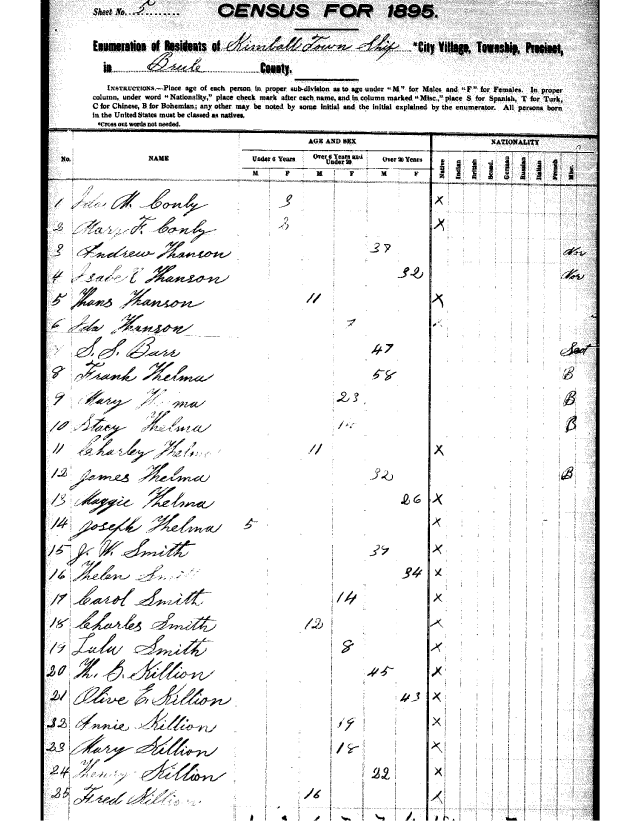 Sheet No. 5
CENSUS FOR 1895.
Enumeration of Residents of Kimball Town Ship *City Village, Township, Precinct,
in Brule County.
INSTRUCTIONS.—Place age of each person in proper sub-division as to age under "M" for Males and "F" for Females. In proper
column, under word "Nationality," place check mark after each name, and in column marked "Misc.," place S for Spanish, T for Turk,
C for Chinese, B for Bohemian; any other may be noted by some initial and the initial explained by the enumerator. All persons born
in the United States must be classed as natives.
*Cross out words not needed.
AGE AND SEX NATIONALITY
No. NAME Under 6 Years Over 6 Years and Under 20 Over 20 Years Native Indian British Scand. German Russian Italian French Misc.
M F M F M F
1 Ida M. Conly 3 X
2 Mary F. Conly X
3 Andrew Hanson 37 Nor
4 Isabel Hanson 32 Nor
5 Hans Hanson 11 X
6 Ida Hanson 7
S. S. Barr 47 Scot
8 Frank Thelma 58 B
9 Mary 23 B
10 Stacy Thelma B
11 Charley 11 X
12 James Thelma 32 B
13 Maggie Thelma 26 X
14 Joseph Thelma 5 X
15 J. W. Smith 37 X
16 Helen Smith 34 X
17 Carol Smith 14 X
18 Charles Smith 12 X
19 Lulu Smith 8 X
20 H. B. Killion 45 X
21 Olive E. Killion 43 X
22 Annie Killion 19 X
23 Mary Killion 18 X
24 Henry Killion 22 X
25 Fred Killion 16 X